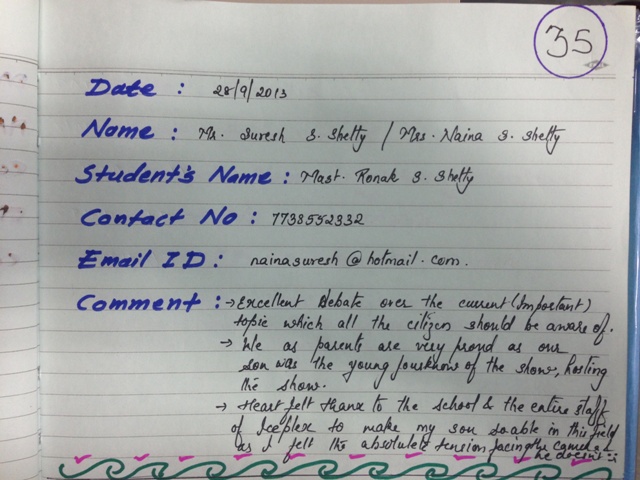 35
Date : 28/9/2013
Name : Mr. Suresh S. Shetty / Mrs. Naina S. Shetty
Student's Name : Mast. Ronak S. Shetty
Contact No : 7738552332
Email ID : nainasuresh@hotmail.com.
Comment : → Excellent Debate over the current (Important)
topic which all the citizen should be aware of.
→ We as parents are very proud as our
son was the young of the show, hosting
the show.
→ Heart felt thanx to the school & the entire staff
of Iceplex to make my son so able in this field
as I felt the absolute tension facing the camera &
he doesn't